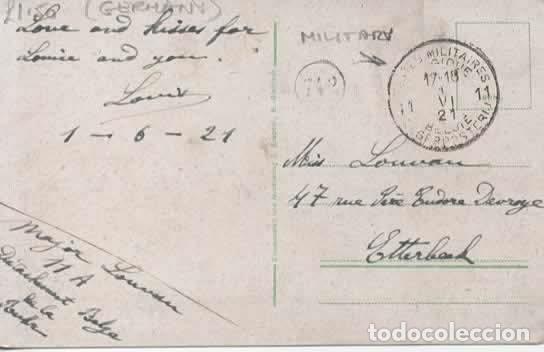 £1.50 (GERMANY)
Love and kisses for
Louise and you.
Louis
1 - 6 - 21
Major Louvau
11 A
Détachement Belge
de la
MILITARY
POSTES MILITAIRES
BELGIQUE
17-18
11 11
1
VI
21
BELGIE
LEGERPOSTERIJ
Miss Louvau
47 rue Père Eudore Devroye
Etterbeek
todocoleccion